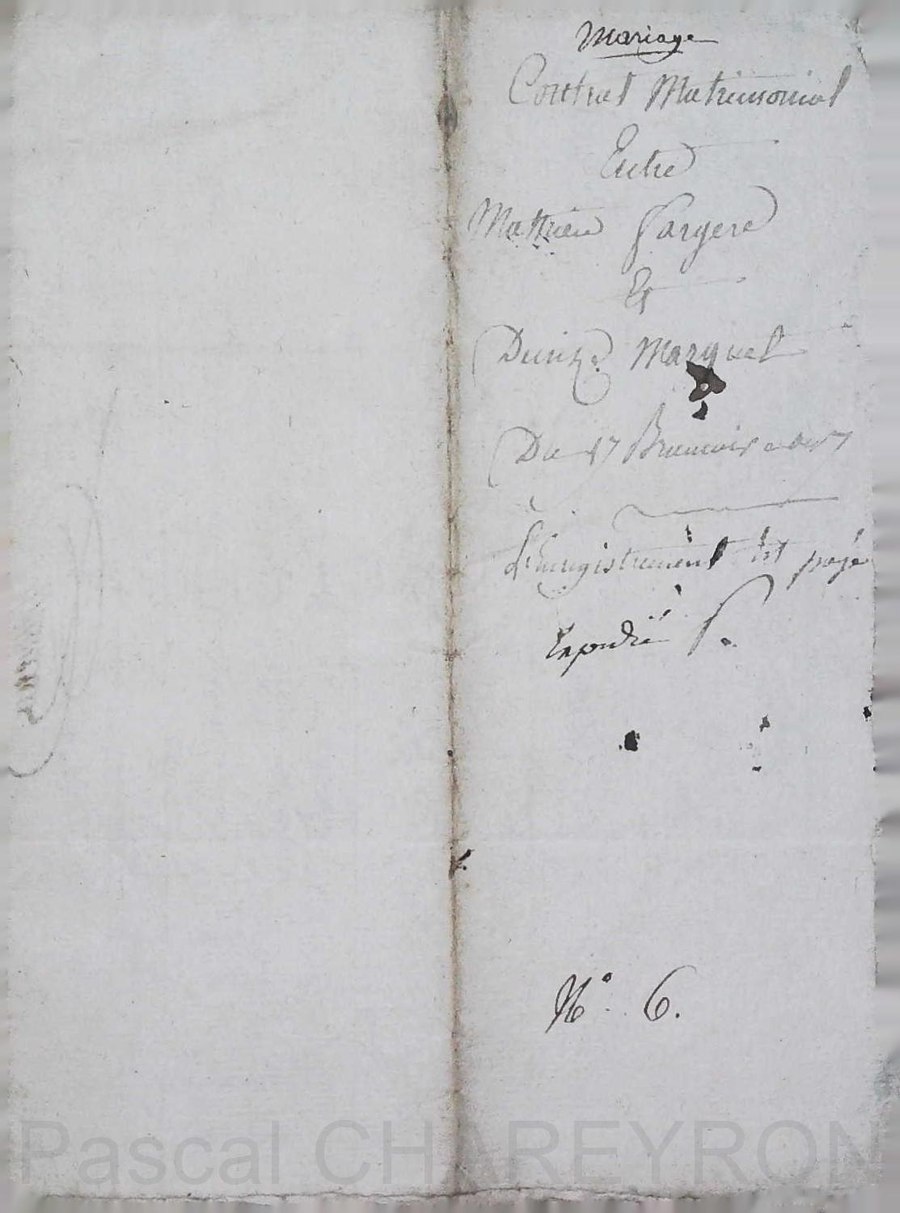 Mariage
Contrat Matrimonial
Entre
Mathieu Fargere
Et
Marguet
Du 17 Brumaire an 7
L'Enregistrement Est payé
Expedié
N° 6.
Pascal CHAREYRON